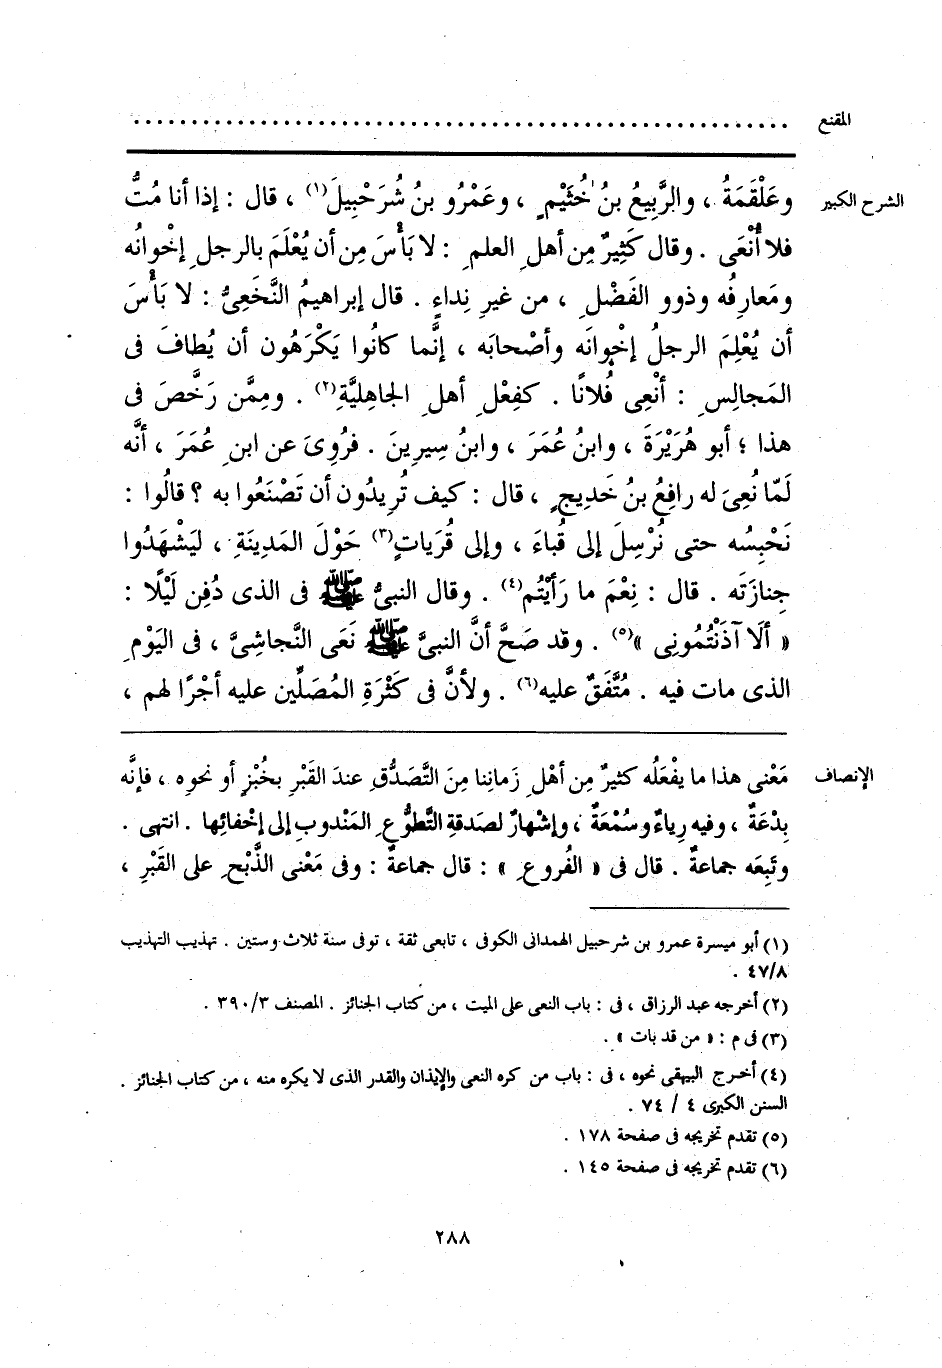 المقنع
. . . . . . . . . . . . . . . . . . . . . . . . . . . . . . . . . . . . . . . . . . . . . . . . . . . . . .
الشرح الكبير
وعَلْقَمَةُ ، والرَّبِيعُ بنُ خُثَيْمٍ ، وعَمْرُو بنُ شُرَحْبِيلَ(١) ، قال : إذا أنا مُتُّ
فلا أُنْعَى . وقال كَثِيرٌ مِن أهلِ العلمِ : لا بَأْسَ مِن أن يُعْلَمَ بالرجلِ إخْوانُه
ومَعارِفُه وذوو الفَضْلِ ، من غيرِ نِداءٍ . قال إبراهيمُ النَّخَعِيُّ : لا بَأْسَ
أن يُعْلِمَ الرجلُ إخْوانَه وأصْحابَه ، إنَّما كانُوا يَكْرَهُون أن يُطافَ فى
المَجالِسِ : أنْعِى فُلانًا . كفِعْلِ أهلِ الجاهِلِيَّةِ(٢) . ومِمَّن رَخَّصَ فى
هذا ؛ أبو هُرَيْرَةَ ، وابنُ عُمَرَ ، وابنُ سِيرِينَ . فرُوِىَ عن ابنِ عُمَرَ ، أنَّه
لَمّا نُعِىَ له رافِعُ بنُ خَدِيجٍ ، قال : كيف تُرِيدُون أن تَصْنَعُوا به ؟ قالُوا :
نَحْبِسُه حتى نُرْسِلَ إلى قُباءَ ، وإلى قُرَياتٍ(٣) حَوْلَ المَدِينَةِ ، ليَشْهَدُوا
جِنازَتَه . قال : نِعْمَ ما رَأَيْتُم(٤) . وقال النبىُّ ﷺ فى الذى دُفِن لَيْلًا :
« ألَا آذَنْتُمُونِى »(٥) . وقد صَحَّ أنَّ النبىَّ ﷺ نَعَى النَّجاشِىَّ ، فى اليَوْمِ
الذى مات فيه . مُتَّفَقٌ عليه(٦) . ولأنَّ فى كَثْرَةِ المُصَلِّين عليه أجْرًا لهم ،
الإنصاف
مَعْنى هذا ما يفْعَلُه كثيرٌ مِن أهْلِ زَمانِنا مِنَ التَّصَدُّقِ عندَ القَبْرِ بخُبْزٍ أو نحوِه ، فإنَّه
بِدْعَةٌ ، وفيه رِياءٌ وسُمْعَةٌ ، وإشْهارٌ لصَدقةِ التَّطوُّعِ المَنْدوبِ إلى إخْفائِها . انتهى .
وتَبِعَه جماعةٌ . قال فى « الفُروعِ » : قال جماعةٌ : وفى مَعْنى الذَّبْحِ على القَبْرِ ،
(١) أبو ميسرة عمرو بن شرحبيل الهمدانى الكوفى ، تابعى ثقة ، توفى سنة ثلاث وستين . تهذيب التهذيب
٤٧/٨ .
(٢) أخرجه عبد الرزاق ، فى : باب النعى على الميت ، من كتاب الجنائز . المصنف ٣٩٠/٣ .
(٣) فى م : « من قد بات » .
(٤) أخرج البيهقى نحوه ، فى : باب من كره النعى والإيذان والقدر الذى لا يكره منه ، من كتاب الجنائز .
السنن الكبرى ٤ / ٧٤ .
(٥) تقدم تخريجه فى صفحة ١٧٨ .
(٦) تقدم تخريجه فى صفحة ١٤٥ .
٢٨٨